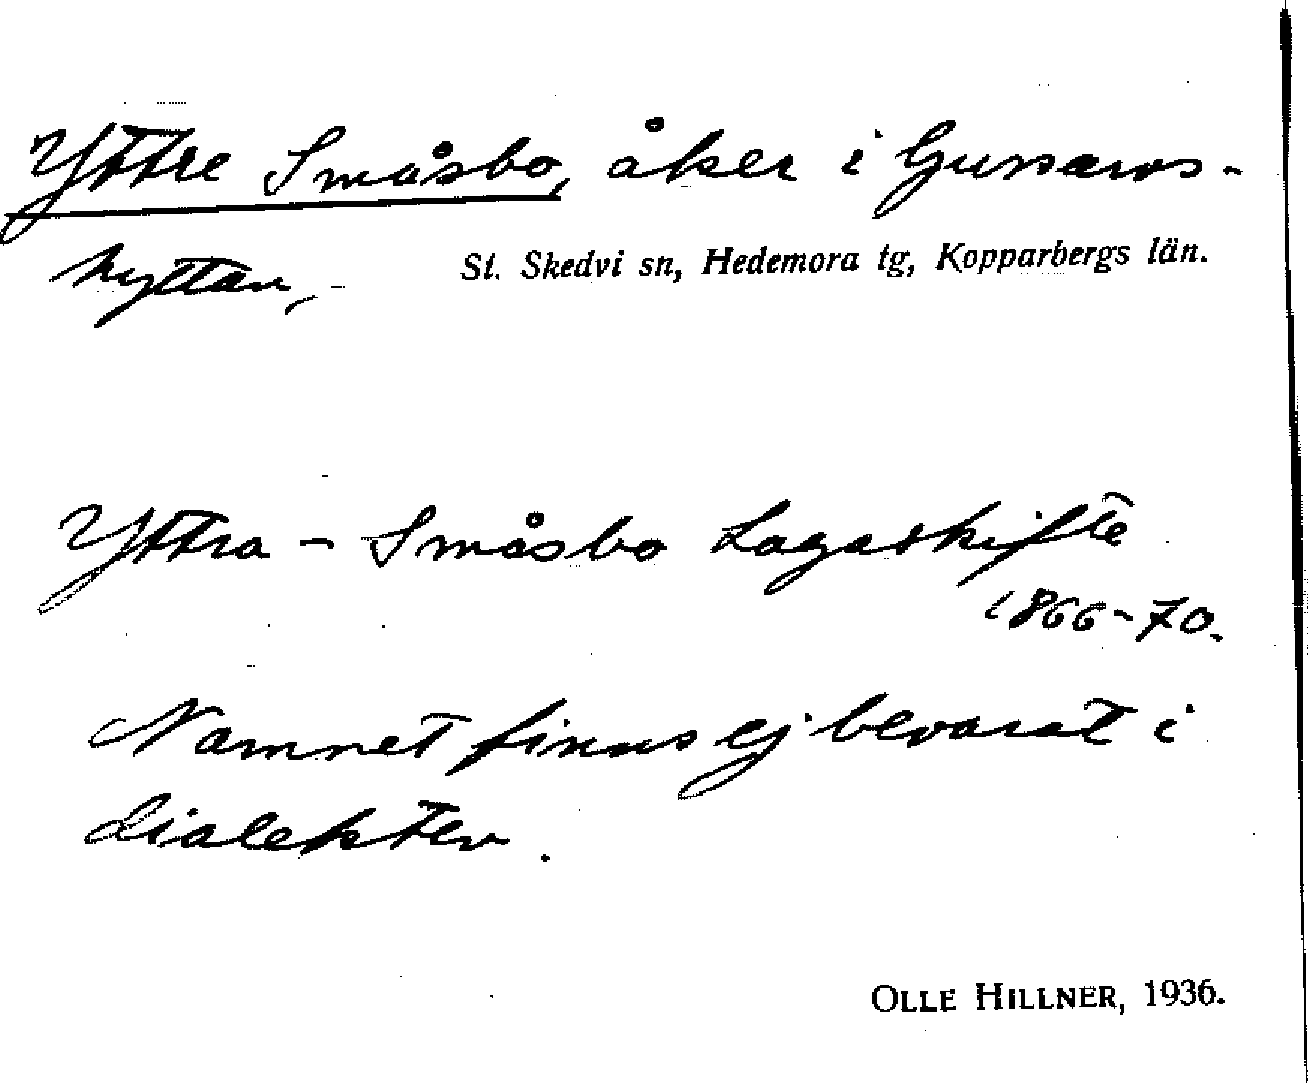 Yttre Småsbo, åker i Gussarvs-
hyttan,
St. Skedvi sn, Hedemora tg, Kopparbergs län.
Yttra - Småsbo Lagaskifte
1866-70.
Namnet finns ej bevarat i
dialekten.
OLLE HILLNER, 1936.